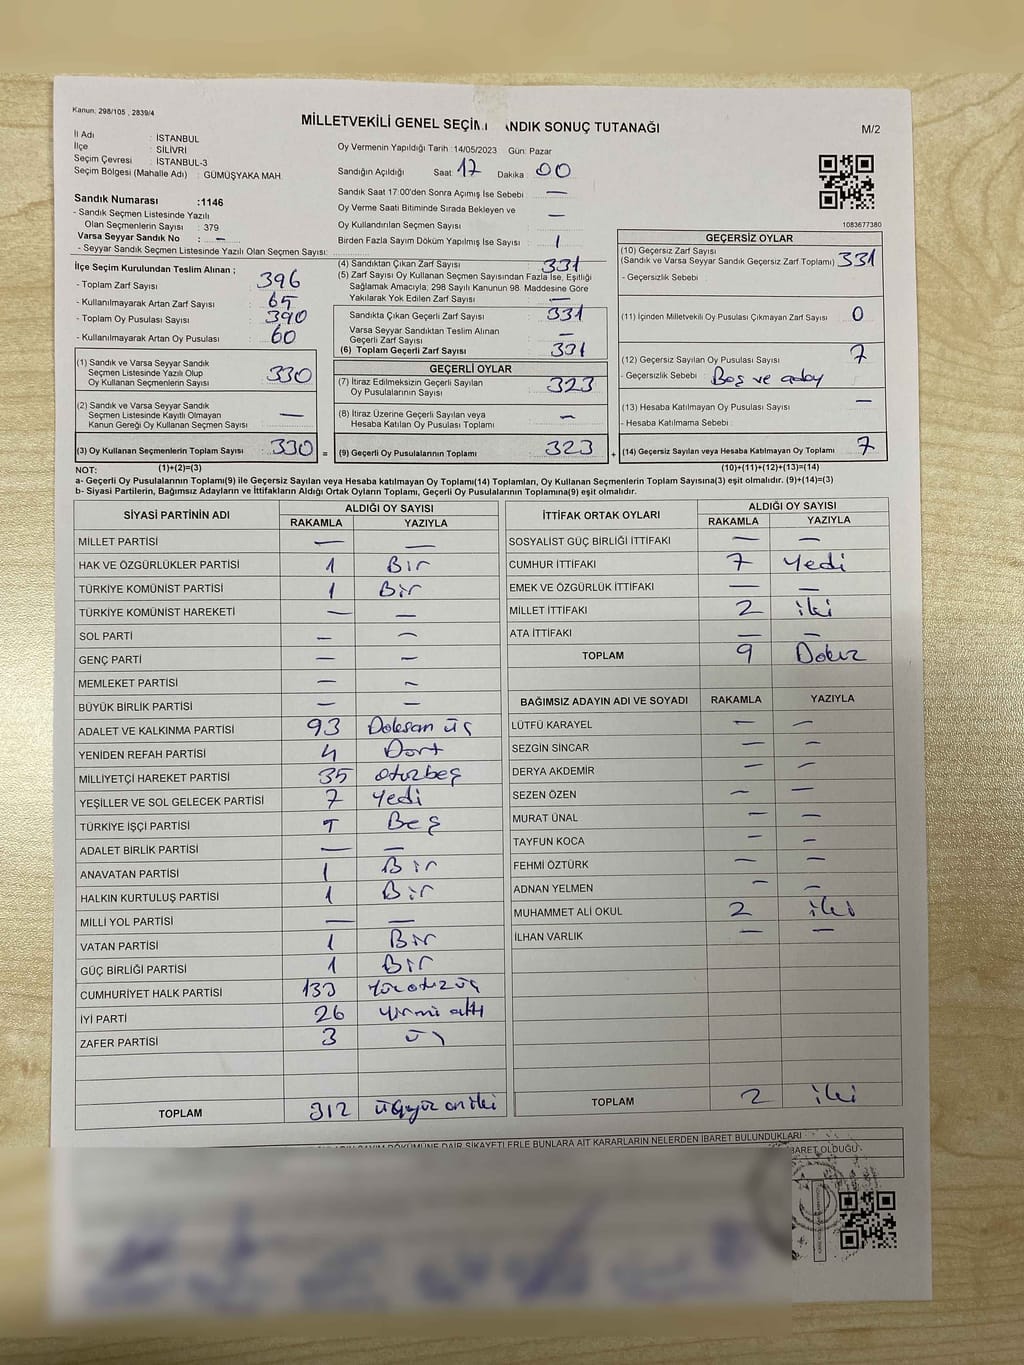 Kanun: 298/105 , 2839/4
MİLLETVEKİLİ GENEL SEÇİM ANDIK SONUÇ TUTANAĞI
M/2
İl Adı : İSTANBUL
İlçe : SİLİVRİ
Seçim Çevresi : İSTANBUL-3
Seçim Bölgesi (Mahalle Adı) : GÜMÜŞYAKA MAH.
Oy Vermenin Yapıldığı Tarih :14/05/2023 Gün: Pazar
Sandığın Açıldığı Saat 17 Dakika 00
Sandık Saat 17:00'den Sonra Açımış İse Sebebi —
Oy Verme Saati Bitiminde Sırada Bekleyen ve
Oy Kullandırılan Seçmen Sayısı —
Birden Fazla Sayım Döküm Yapılmış İse Sayısı 1
Sandık Numarası :1146
- Sandık Seçmen Listesinde Yazılı
Olan Seçmenlerin Sayısı : 379
Varsa Seyyar Sandık No : —
- Seyyar Sandık Seçmen Listesinde Yazılı Olan Seçmen Sayısı:
1083677380
İlçe Seçim Kurulundan Teslim Alınan ;
- Toplam Zarf Sayısı 396
- Kullanılmayarak Artan Zarf Sayısı 65
- Toplam Oy Pusulası Sayısı 390
- Kullanılmayarak Artan Oy Pusulası 60
(1) Sandık ve Varsa Seyyar Sandık
Seçmen Listesinde Yazılı Olup
Oy Kullanan Seçmenlerin Sayısı 330
(2) Sandık ve Varsa Seyyar Sandık
Seçmen Listesinde Kayıtlı Olmayan
Kanun Gereği Oy Kullanan Seçmen Sayısı —
(3) Oy Kullanan Seçmenlerin Toplam Sayısı 330 =
(4) Sandıktan Çıkan Zarf Sayısı 331
(5) Zarf Sayısı Oy Kullanan Seçmen Sayısından Fazla İse, Eşitliği
Sağlamak Amacıyla; 298 Sayılı Kanunun 98. Maddesine Göre
Yakılarak Yok Edilen Zarf Sayısı —
Sandıkta Çıkan Geçerli Zarf Sayısı 331
Varsa Seyyar Sandıktan Teslim Alınan
Geçerli Zarf Sayısı —
(6) Toplam Geçerli Zarf Sayısı 331
GEÇERLİ OYLAR
(7) İtiraz Edilmeksizin Geçerli Sayılan
Oy Pusulalarının Sayısı 323
(8) İtiraz Üzerine Geçerli Sayılan veya
Hesaba Katılan Oy Pusulası Toplamı —
(9) Geçerli Oy Pusulalarının Toplamı 323 +
GEÇERSİZ OYLAR
(10) Geçersiz Zarf Sayısı
(Sandık ve Varsa Seyyar Sandık Geçersiz Zarf Toplamı) 331
- Geçersizlik Sebebi
(11) İçinden Milletvekili Oy Pusulası Çıkmayan Zarf Sayısı 0
(12) Geçersiz Sayılan Oy Pusulası Sayısı 7
- Geçersizlik Sebebi : Boş ve aday
(13) Hesaba Katılmayan Oy Pusulası Sayısı —
- Hesaba Katılmama Sebebi :
(14) Geçersiz Sayılan veya Hesaba Katılmayan Oy Toplamı 7
NOT: (1)+(2)=(3) (10)+(11)+(12)+(13)=(14)
a- Geçerli Oy Pusulalarının Toplamı(9) ile Geçersiz Sayılan veya Hesaba katılmayan Oy Toplamı(14) Toplamları, Oy Kullanan Seçmenlerin Toplam Sayısına(3) eşit olmalıdır. (9)+(14)=(3)
b- Siyasi Partilerin, Bağımsız Adayların ve İttifakların Aldığı Ortak Oyların Toplamı, Geçerli Oy Pusulalarının Toplamına(9) eşit olmalıdır.
SİYASİ PARTİNİN ADI ALDIĞI OY SAYISI
RAKAMLA YAZIYLA
MİLLET PARTİSİ — —
HAK VE ÖZGÜRLÜKLER PARTİSİ 1 Bir
TÜRKİYE KOMÜNİST PARTİSİ 1 Bir
TÜRKİYE KOMÜNİST HAREKETİ — —
SOL PARTİ — —
GENÇ PARTİ — —
MEMLEKET PARTİSİ — —
BÜYÜK BİRLİK PARTİSİ — —
ADALET VE KALKINMA PARTİSİ 93 Doksan üç
YENİDEN REFAH PARTİSİ 4 Dört
MİLLİYETÇİ HAREKET PARTİSİ 35 otuzbeş
YEŞİLLER VE SOL GELECEK PARTİSİ 7 Yedi
TÜRKİYE İŞÇİ PARTİSİ 5 Beş
ADALET BİRLİK PARTİSİ — —
ANAVATAN PARTİSİ 1 Bir
HALKIN KURTULUŞ PARTİSİ 1 Bir
MİLLİ YOL PARTİSİ — —
VATAN PARTİSİ 1 Bir
GÜÇ BİRLİĞİ PARTİSİ 1 Bir
CUMHURİYET HALK PARTİSİ 133 Yüzotuzüç
İYİ PARTİ 26 Yirmi altı
ZAFER PARTİSİ 3 üç
TOPLAM 312 üçyüz oniki
İTTİFAK ORTAK OYLARI ALDIĞI OY SAYISI
RAKAMLA YAZIYLA
SOSYALİST GÜÇ BİRLİĞİ İTTİFAKI — —
CUMHUR İTTİFAKI 7 Yedi
EMEK VE ÖZGÜRLÜK İTTİFAKI — —
MİLLET İTTİFAKI 2 iki
ATA İTTİFAKI — —
TOPLAM 9 Dokuz
BAĞIMSIZ ADAYIN ADI VE SOYADI RAKAMLA YAZIYLA
LÜTFÜ KARAYEL — —
SEZGİN SİNCAR — —
DERYA AKDEMİR — —
SEZEN ÖZEN — —
MURAT ÜNAL — —
TAYFUN KOCA — —
FEHMİ ÖZTÜRK — —
ADNAN YELMEN — —
MUHAMMET ALİ OKUL 2 iki
İLHAN VARLIK — —
TOPLAM 2 iki
SAYIM DÖKÜMÜNE DAİR ŞİKAYETLERLE BUNLARA AİT KARARLARIN NELERDEN İBARET BULUNDUKLARI
İBARET OLDUĞU